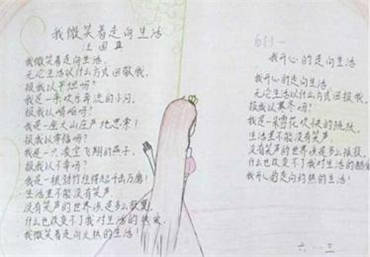 我微笑着走向生活
汪国真
我微笑着走向生活,
无论生活以什么方式回敬我。
报我以平坦吗?
我是一条欢乐奔流的小河。
报我以崎岖吗?
我是一座大山庄严地思索!
报我以幸福吗?
我是一只凌空飞翔的燕子。
报我以不幸吗?
我是一根劲竹经得起千击万磨!
生活里不能没有笑声,
没有笑声的世界该是多么寂寞。
什么也改变不了我对生活的热爱,
我微笑着走向火热的生活!
我开心的走向生活
我开心的走向生活
无论生活以什么方式回报我。
报我以寒冬吗?
我是一朵雪花欢快的
生活里不能没有笑声
没有笑声的世界该是多么
什么也改变不了我对生活的
我开心的走向灼热的生活!